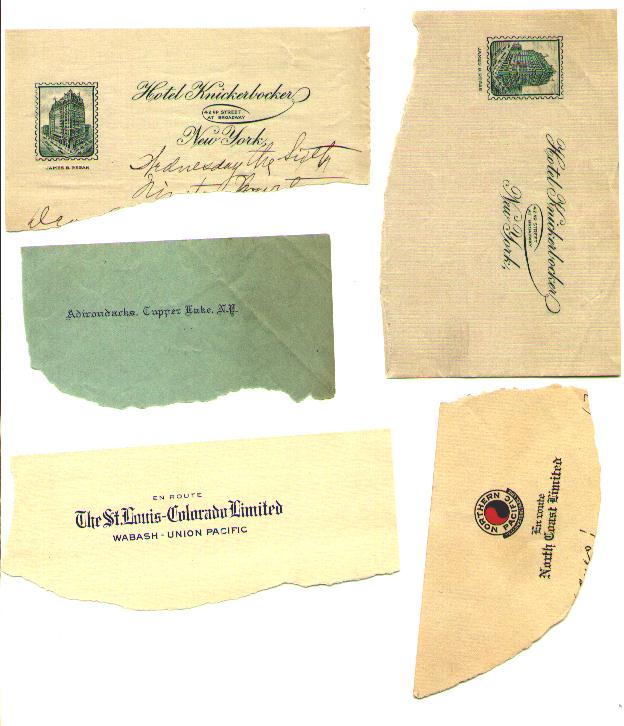 Hotel Knickerbocker
42ND STREET
AT BROADWAY
New York,
JAMES B. REGAN
Wednesday the Sixth
Hotel Knickerbocker
42ND STREET
AT BROADWAY
New York,
JAMES B. REGAN
Adirondacks, Tupper Lake, N.Y.
EN ROUTE
The St. Louis-Colorado Limited
WABASH - UNION PACIFIC
NORTHERN PACIFIC
En route
North Coast Limited